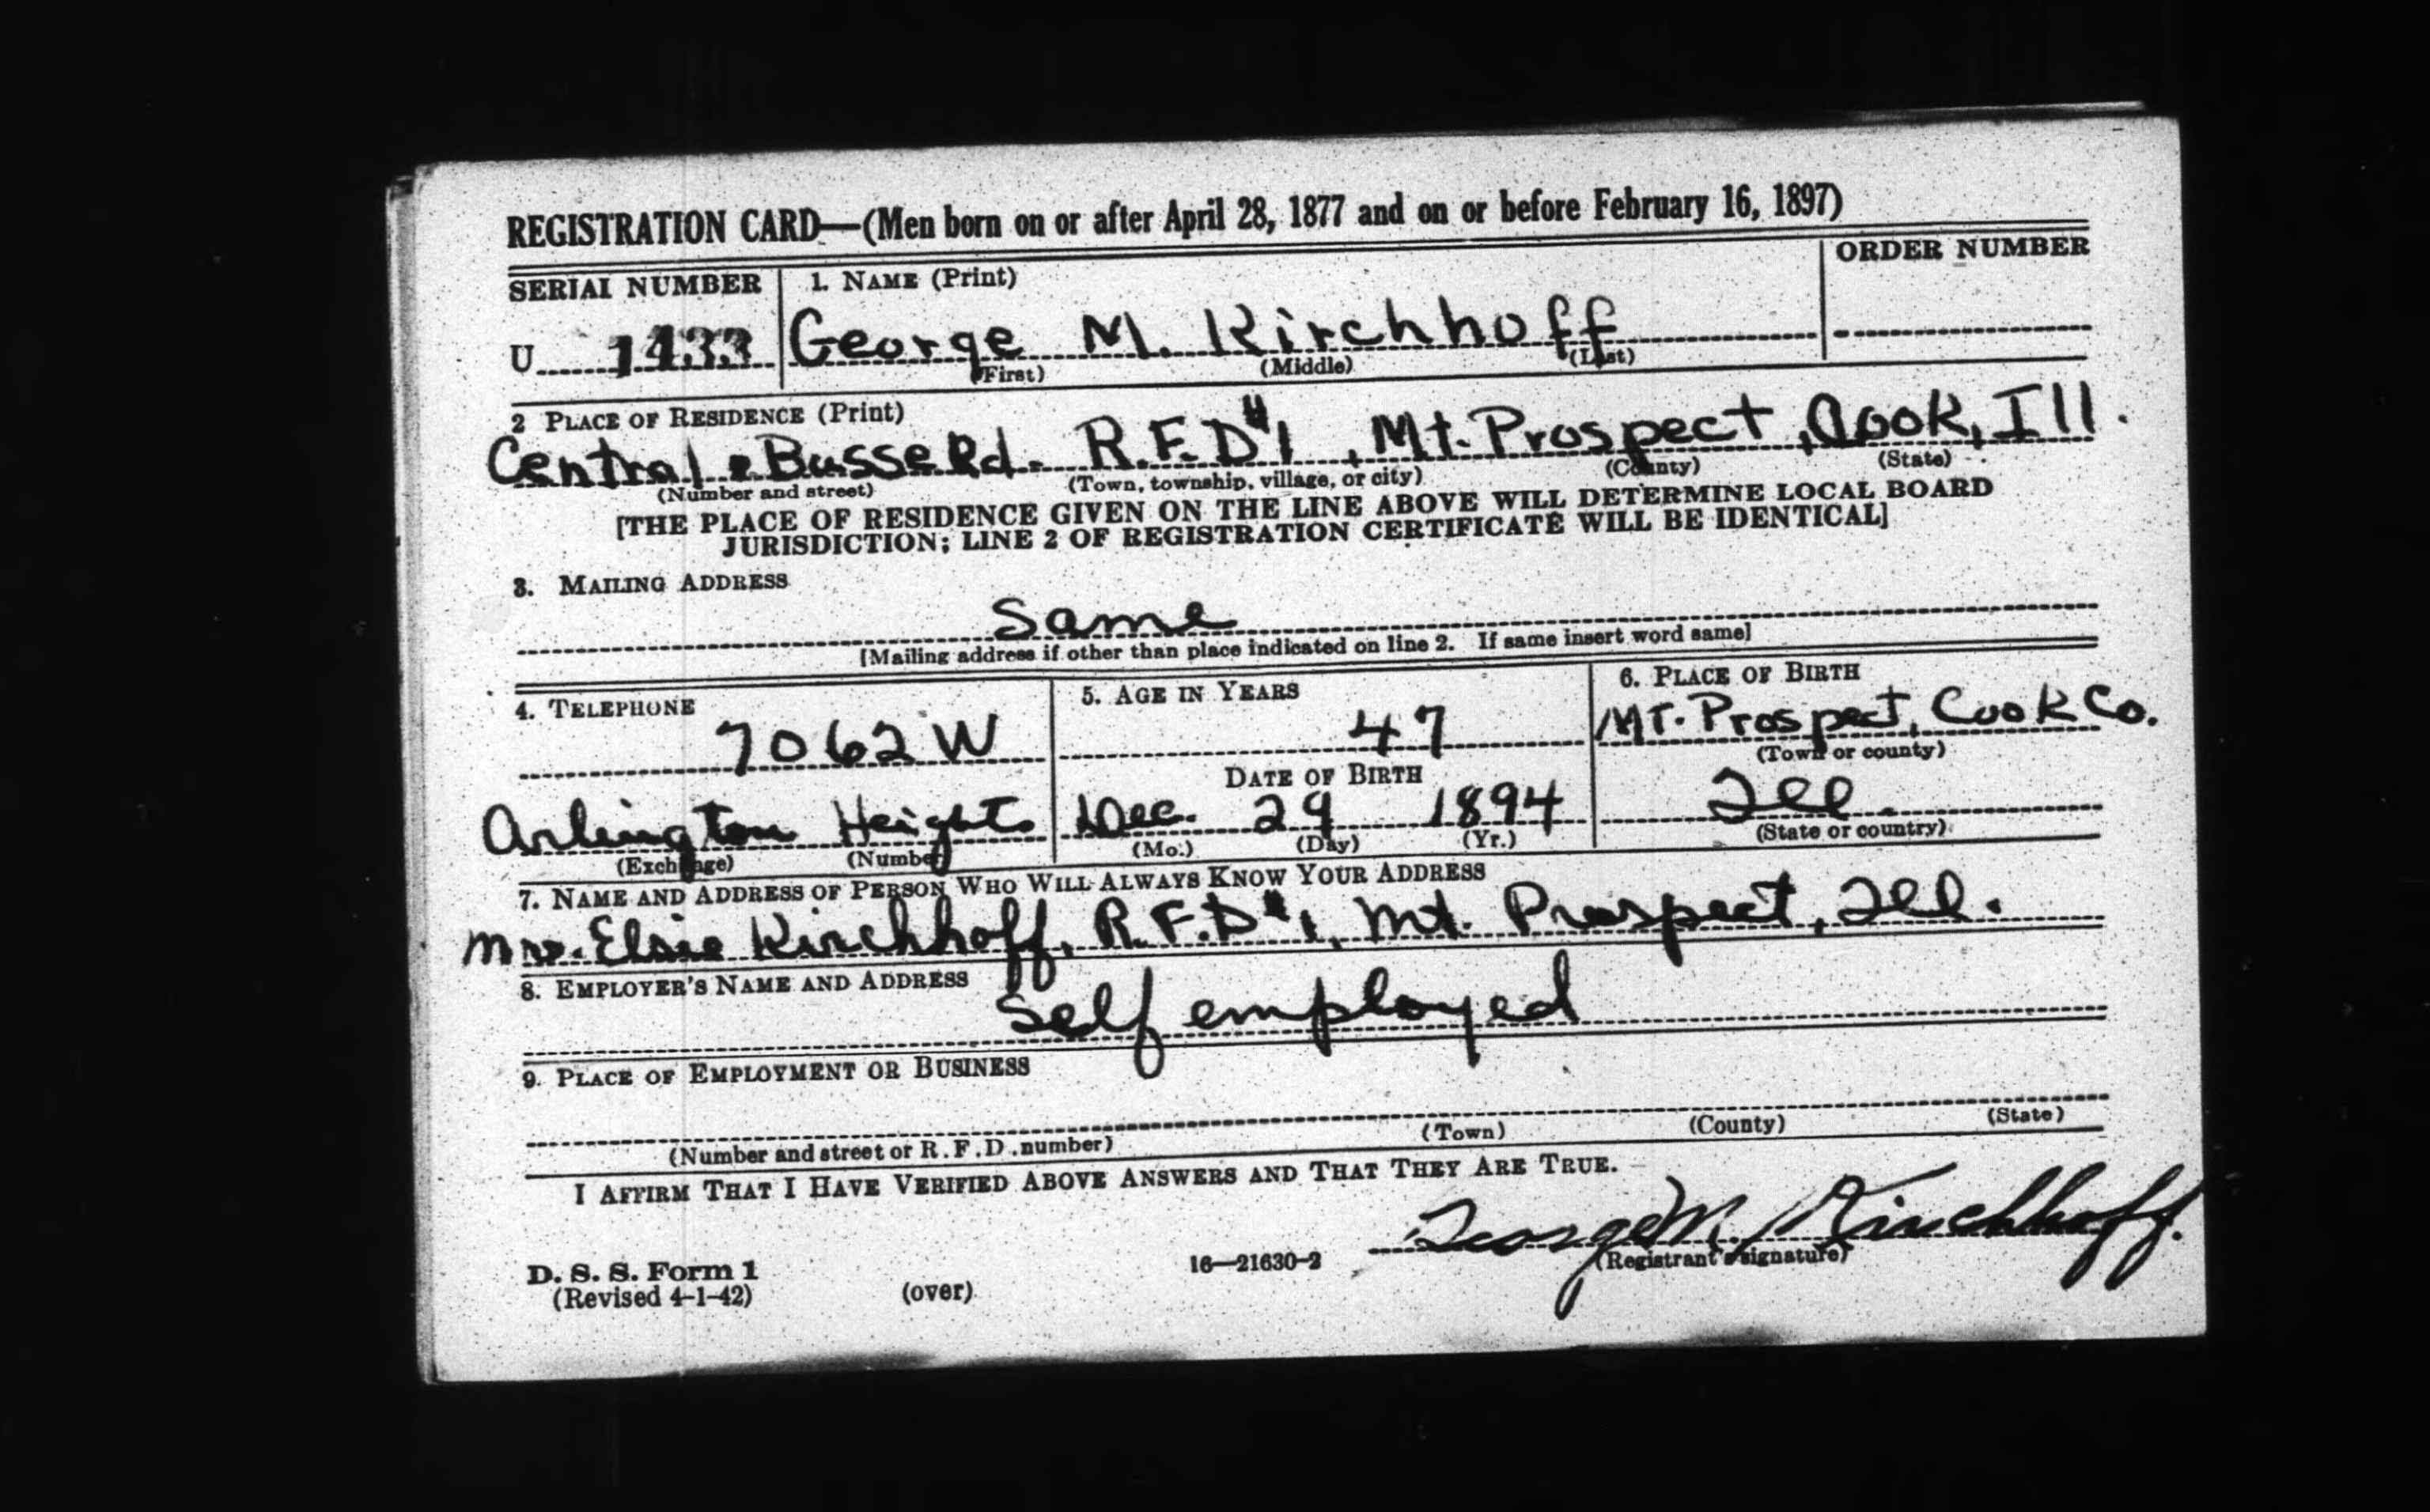 REGISTRATION CARD—(Men born on or after April 28, 1877 and on or before February 16, 1897)
SERIAL NUMBER
1. NAME (Print)
ORDER NUMBER
U 1433
George M. Kirchhoff
(First) (Middle) (Last)
2 PLACE OF RESIDENCE (Print)
Central & Busse Rd. R.F.D #1, Mt. Prospect, Cook, Ill.
(Number and street) (Town, township, village, or city) (County) (State)
[THE PLACE OF RESIDENCE GIVEN ON THE LINE ABOVE WILL DETERMINE LOCAL BOARD
JURISDICTION; LINE 2 OF REGISTRATION CERTIFICATE WILL BE IDENTICAL]
3. MAILING ADDRESS
Same
[Mailing address if other than place indicated on line 2. If same insert word same]
4. TELEPHONE
7062 W
Arlington Heights
(Exchange) (Number)
5. AGE IN YEARS
47
DATE OF BIRTH
Dec. 29 1894
(Mo.) (Day) (Yr.)
6. PLACE OF BIRTH
Mt. Prospect, Cook Co.
(Town or county)
Ill.
(State or country)
7. NAME AND ADDRESS OF PERSON WHO WILL ALWAYS KNOW YOUR ADDRESS
Mrs. Elsie Kirchhoff, R.F.D #1, Mt. Prospect, Ill.
8. EMPLOYER'S NAME AND ADDRESS
Self employed
9. PLACE OF EMPLOYMENT OR BUSINESS
(Number and street or R.F.D. number) (Town) (County) (State)
I AFFIRM THAT I HAVE VERIFIED ABOVE ANSWERS AND THAT THEY ARE TRUE.
George M. Kirchhoff.
(Registrant's signature)
D. S. S. Form 1
(Revised 4-1-42)
(over)
16—21630-2